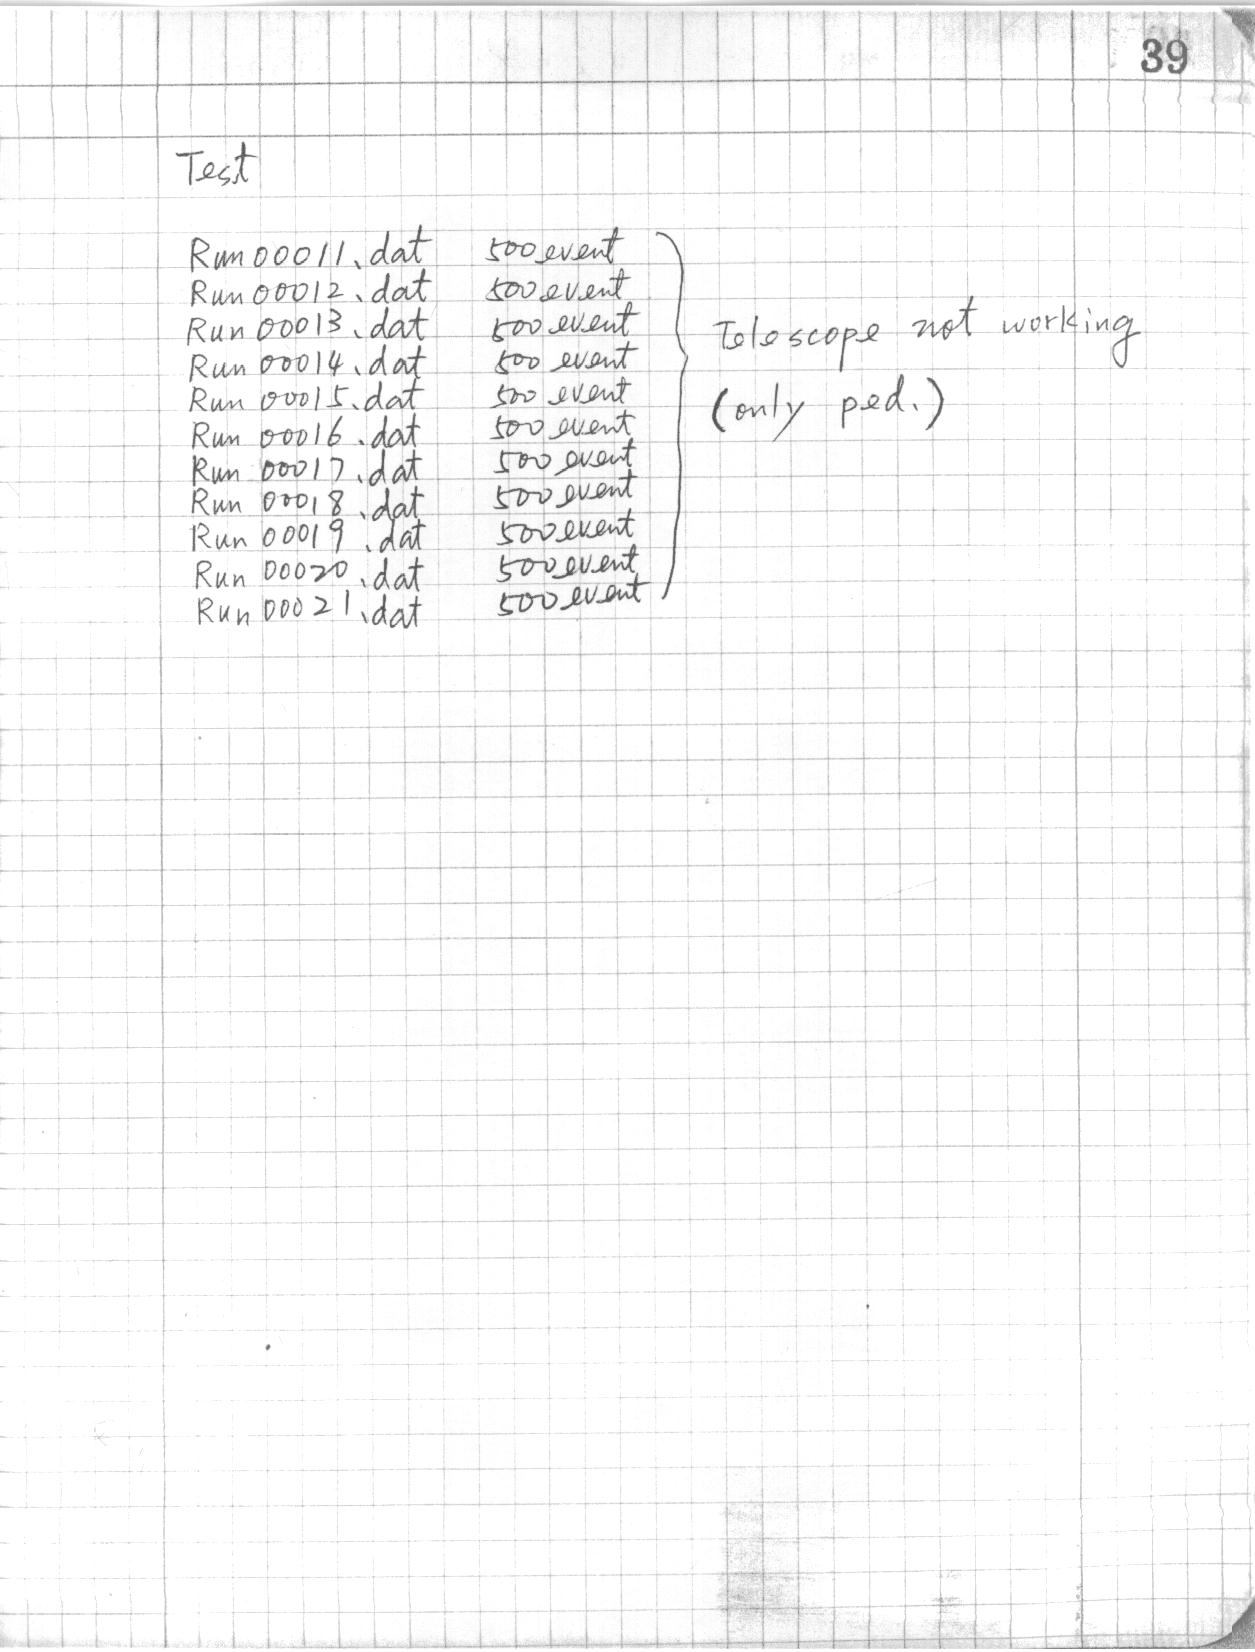 39
Test
Run 00011.dat 500 event
Run 00012.dat 500 event
Run 00013.dat 500 event
Run 00014.dat 500 event
Run 00015.dat 500 event
Run 00016.dat 500 event
Run 00017.dat 500 event
Run 00018.dat 500 event
Run 00019.dat 500 event
Run 00020.dat 500 event
Run 00021.dat 500 event
Telescope not working
(only ped.)